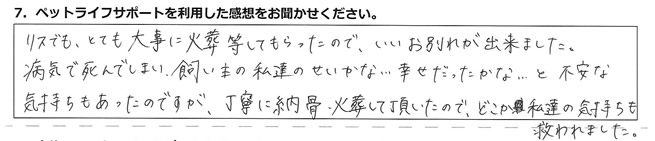 7. ペットライフサポートを利用した感想をお聞かせください。
リスでも、とても大事に火葬等してもらったので、いいお別れが出来ました。
病気で死んでしまい、飼い主の私達のせいかな…幸せだったかな…と不安な
気持ちもあったのですが、丁寧に納骨・火葬して頂いたので、どこか私達の気持ちも
救われました。